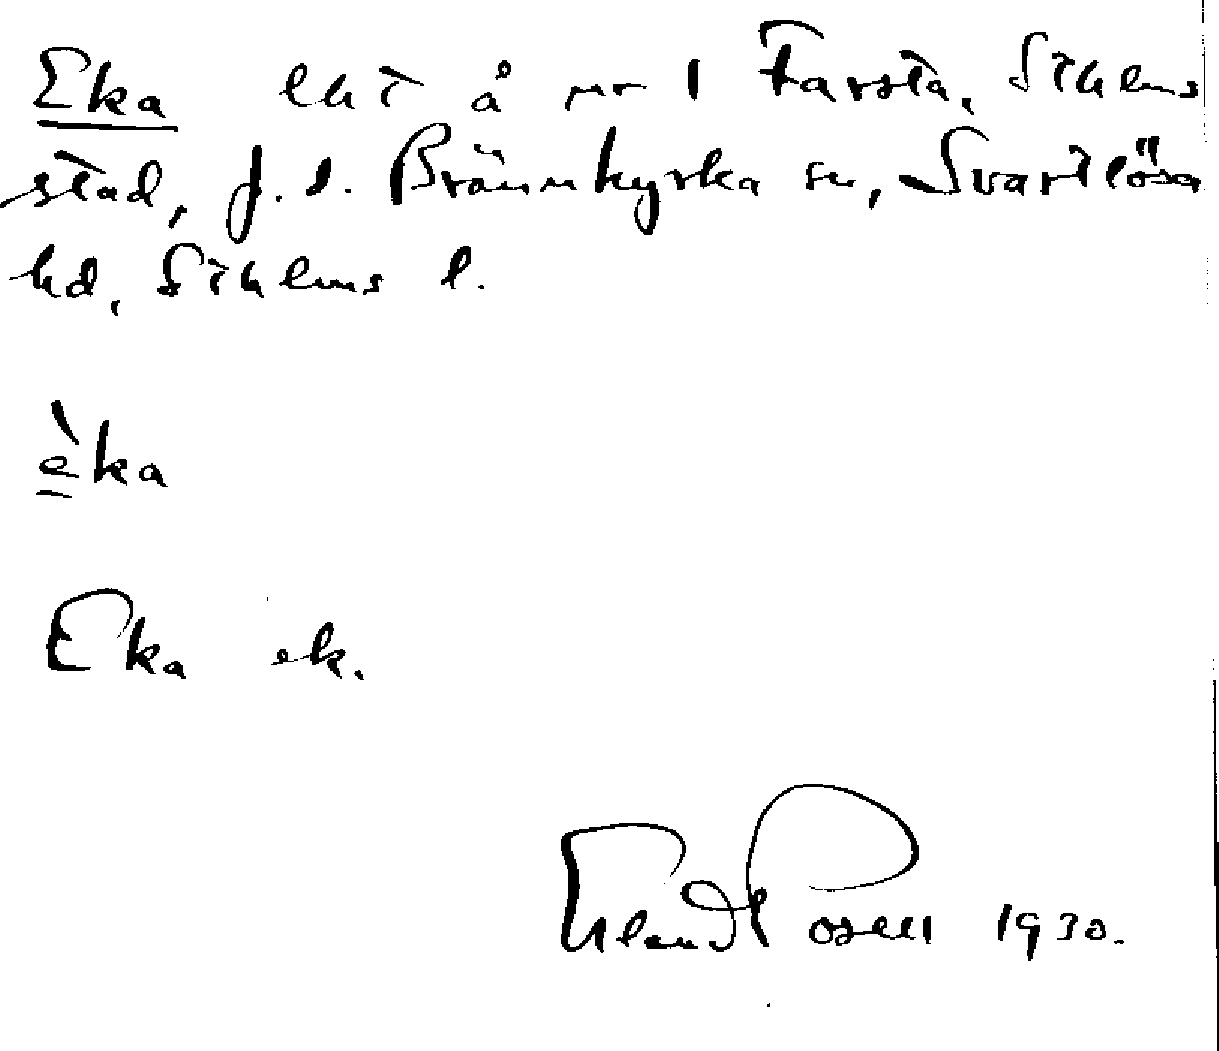 Eka lht å nr 1 Farsta, Sthlms
stad, f.d. Brännkyrka sn, Svartlösa
hd, Sthlms l.
èka
Eka ek.
Erland Rosell 1930.